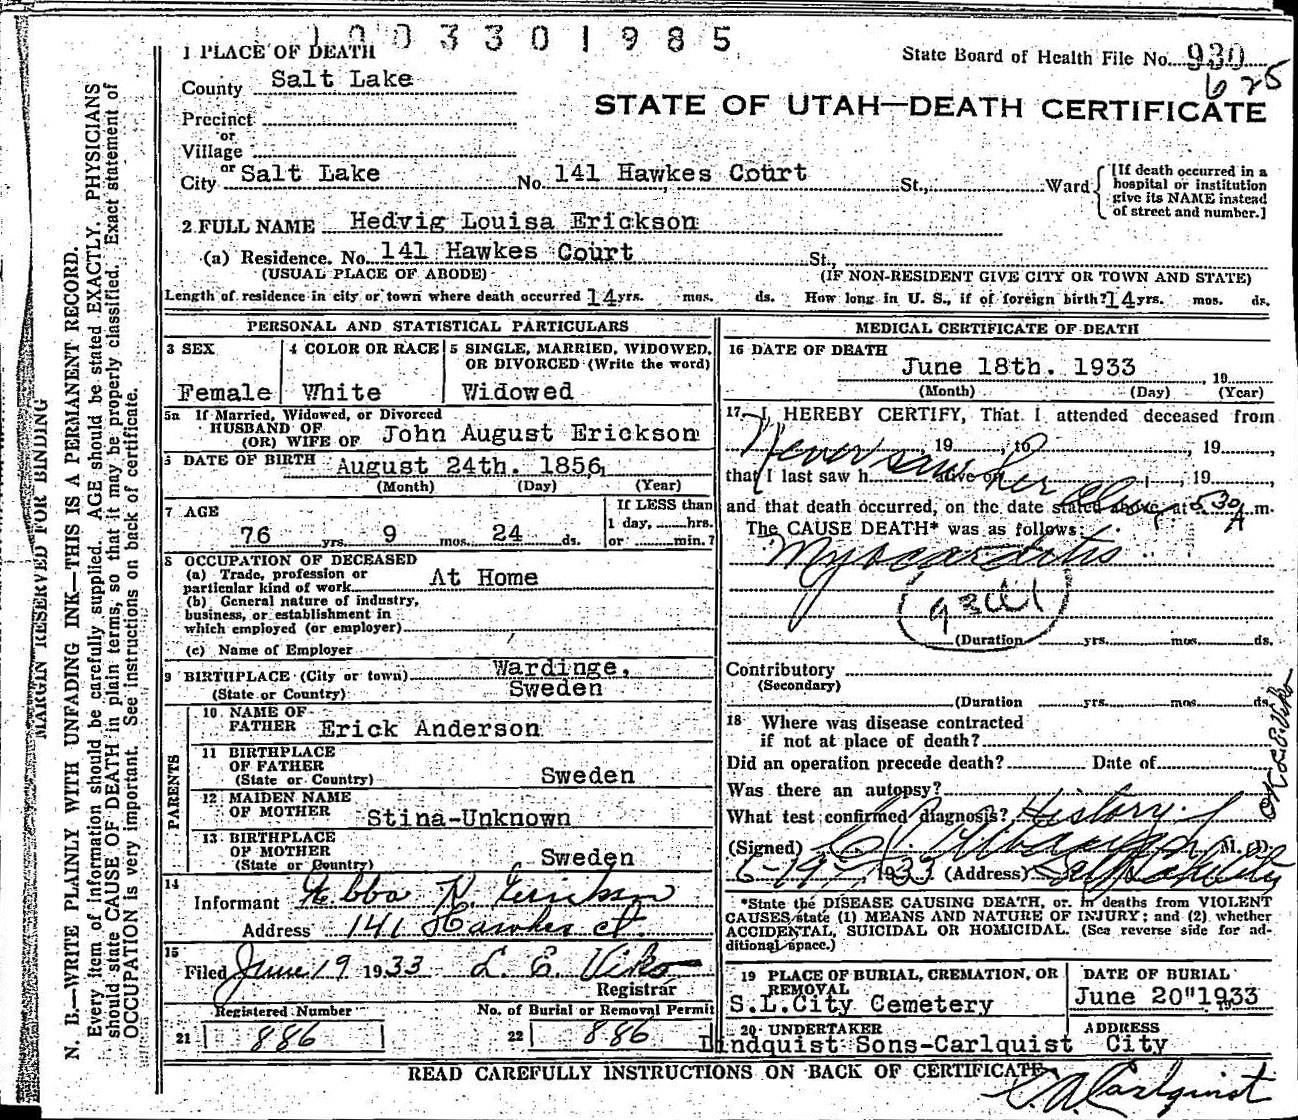 1003301985
1 PLACE OF DEATH
State Board of Health File No. 930
625
County Salt Lake
STATE OF UTAH—DEATH CERTIFICATE
Precinct
or
Village
or
City Salt Lake No. 141 Hawkes Court St., Ward
[If death occurred in a
hospital or institution
give its NAME instead
of street and number.]
2 FULL NAME Hedvig Louisa Erickson
(a) Residence. No. 141 Hawkes Court St.,
(USUAL PLACE OF ABODE) (IF NON-RESIDENT GIVE CITY OR TOWN AND STATE)
Length of residence in city or town where death occurred 14 yrs. mos. ds. How long in U. S., if of foreign birth? 14 yrs. mos. ds.
PERSONAL AND STATISTICAL PARTICULARS
3 SEX
Female
4 COLOR OR RACE
White
5 SINGLE, MARRIED, WIDOWED,
OR DIVORCED (Write the word)
Widowed
5a If Married, Widowed, or Divorced
HUSBAND OF
(OR) WIFE OF John August Erickson
6 DATE OF BIRTH August 24th. 1856,
(Month) (Day) (Year)
7 AGE
76 yrs. 9 mos. 24 ds.
If LESS than
1 day, hrs.
or min.?
8 OCCUPATION OF DECEASED
(a) Trade, profession or
particular kind of work At Home
(b) General nature of industry,
business, or establishment in
which employed (or employer)
(c) Name of Employer
9 BIRTHPLACE (City or town) Wardinge,
(State or Country) Sweden
PARENTS
10 NAME OF
FATHER Erick Anderson
11 BIRTHPLACE
OF FATHER
(State or Country) Sweden
12 MAIDEN NAME
OF MOTHER Stina-Unknown
13 BIRTHPLACE
OF MOTHER
(State or Country) Sweden
14
Informant Hebba N. Erickson
Address 141 Hawkes ct.
15
Filed June 19 1933 L. E. Viko
Registrar
Registered Number
21 886
No. of Burial or Removal Permit
22 886
MEDICAL CERTIFICATE OF DEATH
16 DATE OF DEATH
June 18th. 1933, 19
(Month) (Day) (Year)
17 I HEREBY CERTIFY, That I attended deceased from
, 19 , to , 19 ,
that I last saw h alive on , 19 ,
Never saw her alive
and that death occurred, on the date stated above, at 530 A m.
The CAUSE DEATH* was as follows:
Myocarditis
(Duration yrs. mos. ds.
Contributory
(Secondary)
(Duration yrs. mos. ds.
18 Where was disease contracted
if not at place of death?
Did an operation precede death? Date of
Was there an autopsy?
What test confirmed diagnosis? History
(Signed) M. D.
6-19- 1933 (Address) Salt Lake City
OK L.E. Viko
*State the DISEASE CAUSING DEATH, or in deaths from VIOLENT
CAUSES state (1) MEANS AND NATURE OF INJURY; and (2) whether
ACCIDENTAL, SUICIDAL OR HOMICIDAL. (See reverse side for ad-
ditional space.)
19 PLACE OF BURIAL, CREMATION, OR
REMOVAL
S.L.City Cemetery
DATE OF BURIAL
June 20" 1933
20 UNDERTAKER
Lindquist Sons-Carlquist
ADDRESS
City
READ CAREFULLY INSTRUCTIONS ON BACK OF CERTIFICATE
C. A. Carlquist
MARGIN RESERVED FOR BINDING
N. B.—WRITE PLAINLY WITH UNFADING INK—THIS IS A PERMANENT RECORD.
Every item of information should be carefully supplied. AGE should be stated EXACTLY. PHYSICIANS
should state CAUSE OF DEATH in plain terms, so that it may be properly classified. Exact statement of
OCCUPATION is very important. See instructions on back of certificate.